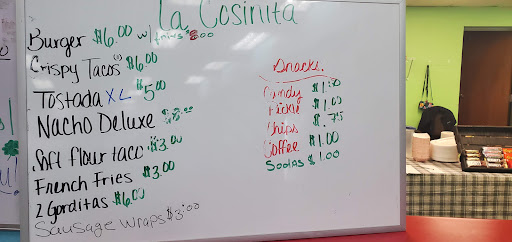 La Cosinita
Burger $6.00 w/fries $8.00
Crispy Tacos $6.00
Tostada XL $5.00
Nacho Deluxe
Soft flour taco $3.00
French Fries $3.00
2 Gorditas $6.00
Sausage Wraps $3.00
Snacks
Candy $1.00
Pickle $1.00
Chips $.75
Coffee $1.00
Sodas $1.00